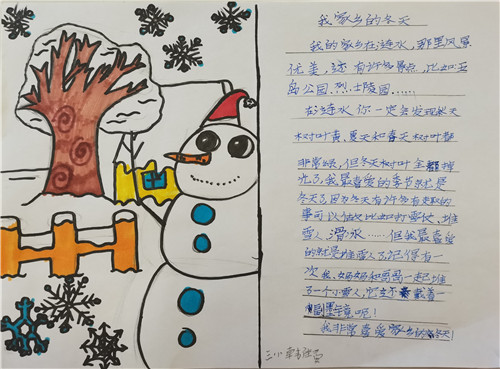 我家乡的冬天
我的家乡在涟水，那里风景
优美，还有许多景点，比如五
岛公园、烈士陵园……
在涟水你一定会发现秋天
树叶黄、夏天和春天树叶都
非常绿，但冬天树叶全掉
光了，我最喜爱的季节就是
冬天了因为冬天有许多有趣的
事可以做比如打雪仗、堆
雪人、滑冰……但我最喜爱
的就是堆雪人了记得有一
次我、妈妈和 一起堆
了一个小雪人，它还 戴着一
副墨镜呢！
我非常喜爱家乡的冬天！
三小